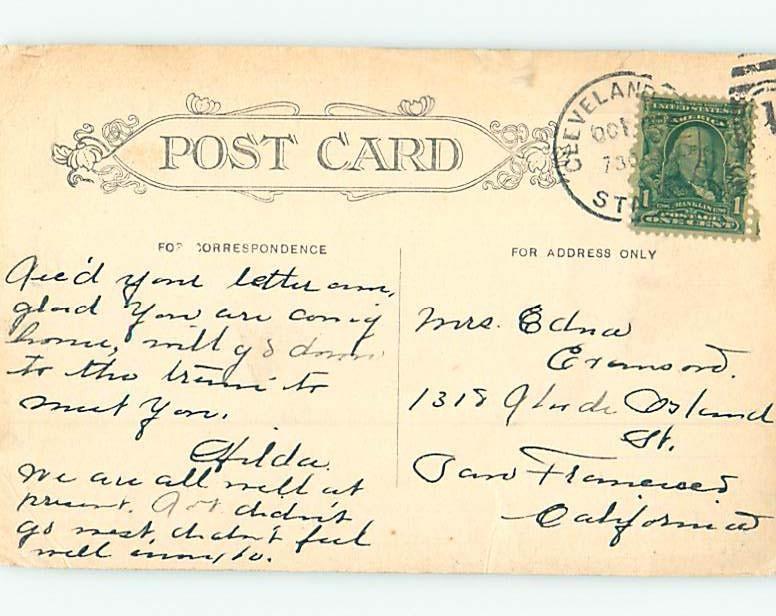 POST CARD
CLEVELAND
OCT
730
STA
UNITED STATES
AMERICA
1 FRANKLIN 1
POSTAGE
ONE CENT
FOR CORRESPONDENCE
FOR ADDRESS ONLY
Rec'd your letter am,
glad you are comig
home, will go down
to the train to
meet you.
Hilda.
We are all well at
present. didn't
go west, didn't feel
well
Mrs. Edna
1318
St.
San Francisco
California